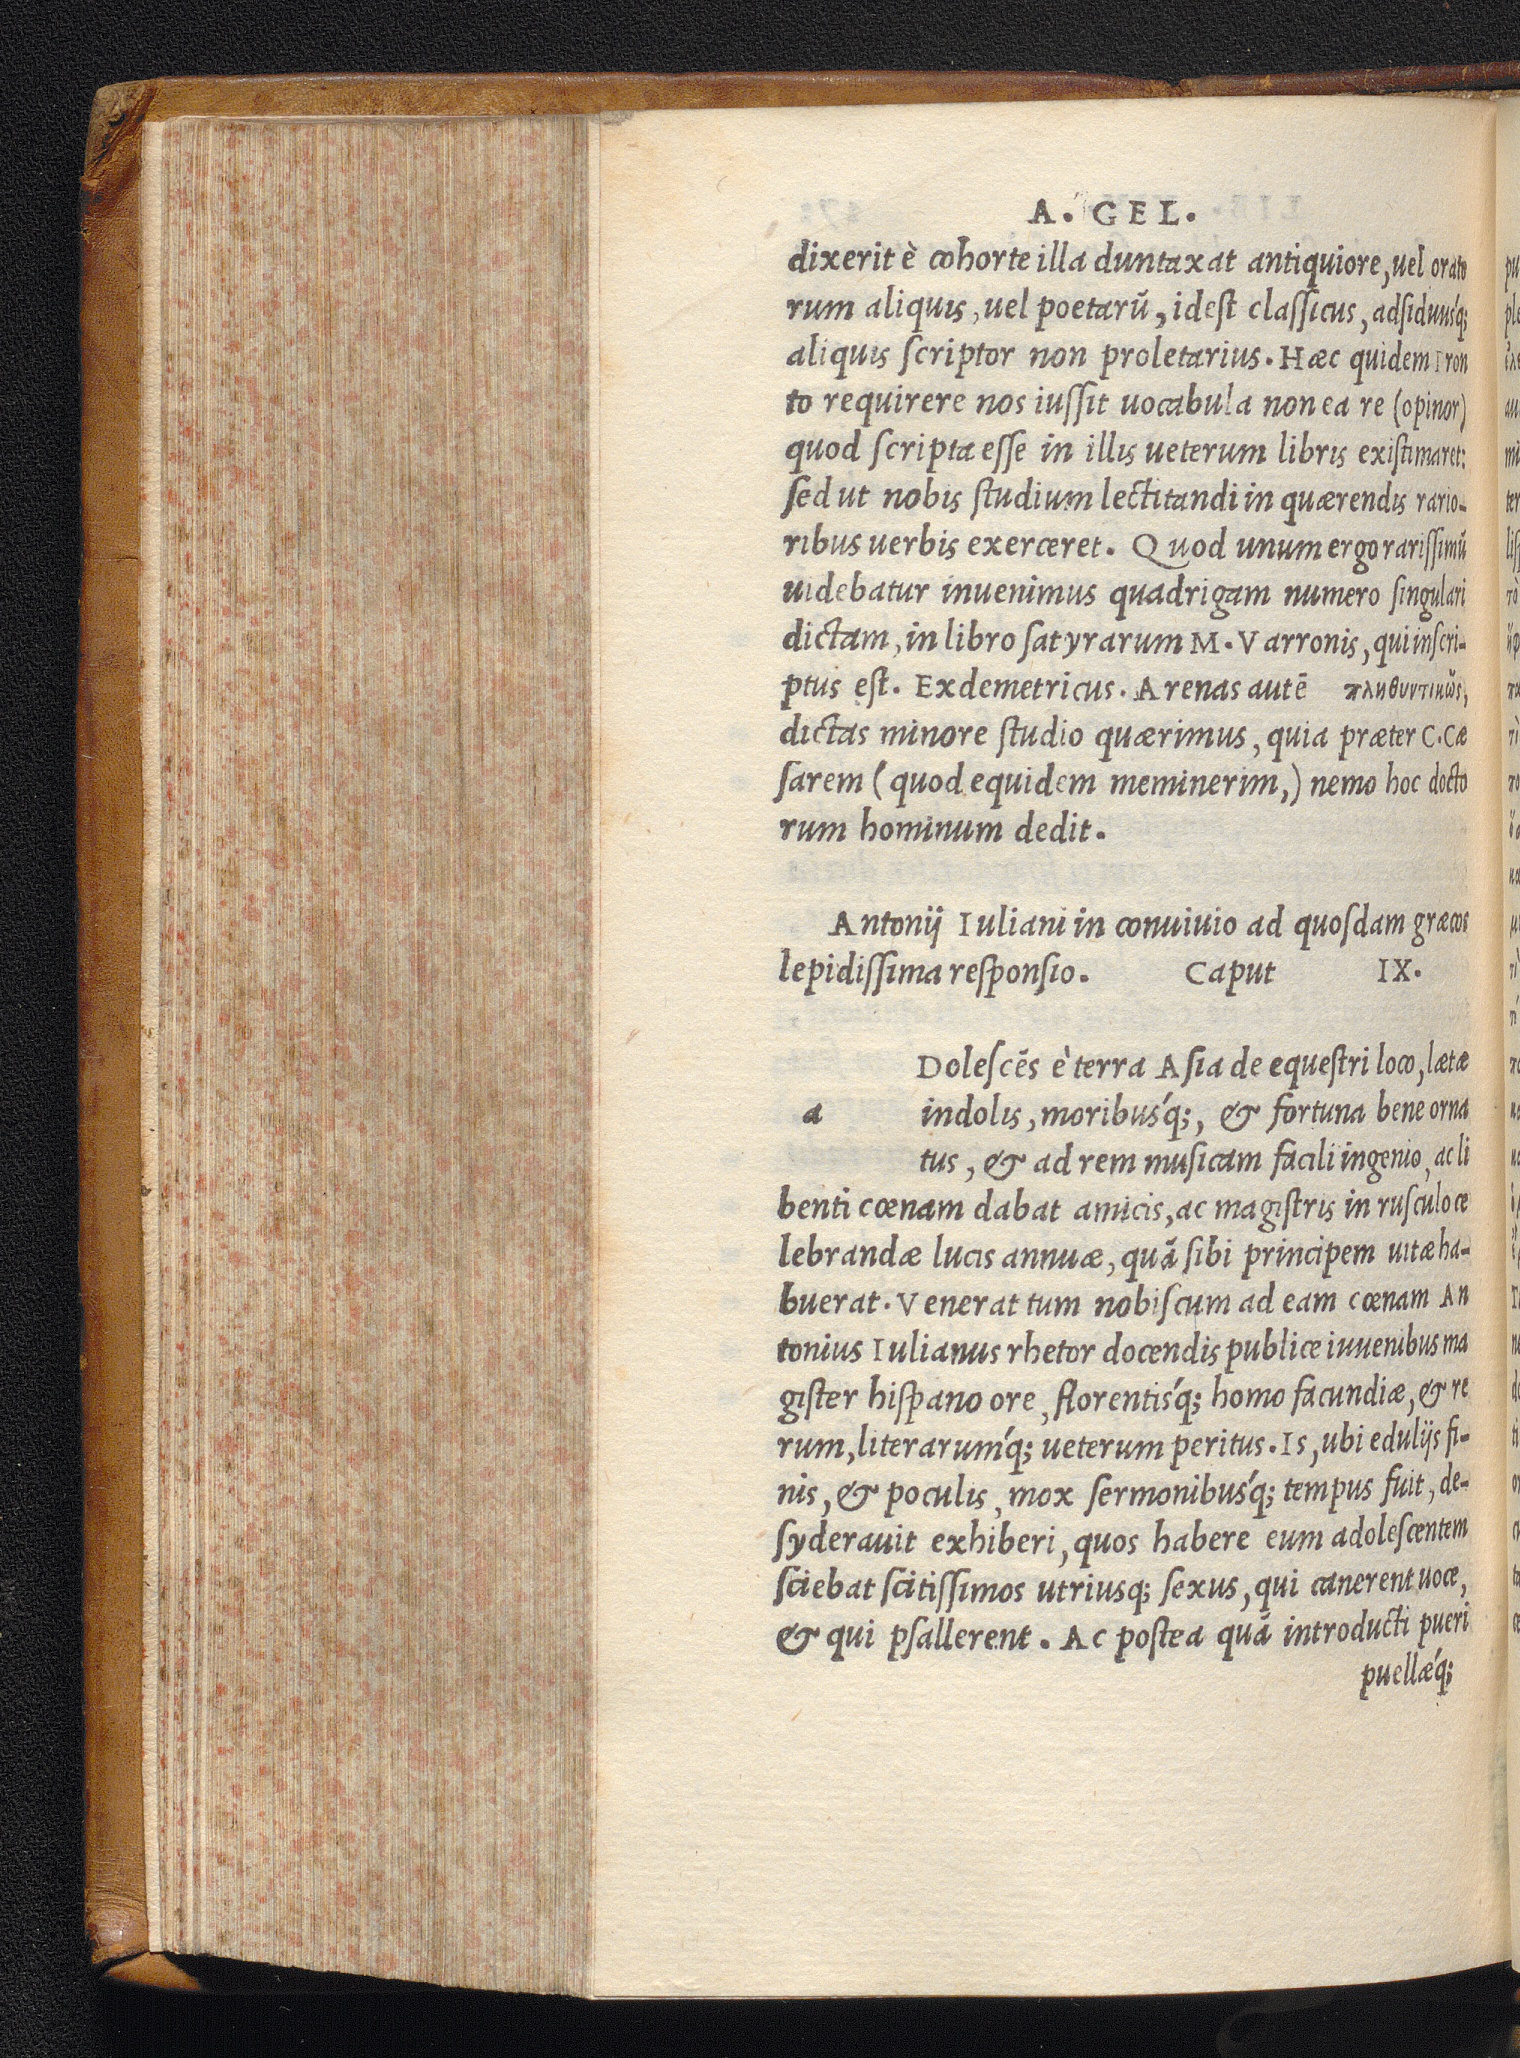 A. GEL.
dixerit è cohorte illa duntaxat antiquiore, uel orato
rum aliquis, uel poetarū, idest classicus, adsiduuśq;
aliquis scriptor non proletarius. Hæc quidem Fron
to requirere nos iussit uocabula non ea re (opinor)
quod scripta esse in illis ueterum libris existimaret:
sed ut nobis studium lectitandi in quærendis rario-
ribus uerbis exerceret. Quod unum ergo rarissimū
uidebatur inuenimus quadrigam numero singulari
dictam, in libro satyrarum M. Varronis, qui inscri-
ptus est. Exdemetricus. Arenas autē πληθυντικῶς,
dictas minore studio quærimus, quia præter C. Cæ
sarem (quod equidem meminerim,) nemo hoc docto
rum hominum dedit.
Antonij Iuliani in conuiuio ad quosdam græcos
lepidissima responsio. Caput IX.
Dolescēs è terra Asia de equestri loco, lætæ
a indolis, moribuśq;, & fortuna bene orna
tus, & ad rem musicam facili ingenio, ac li
benti cœnam dabat amicis, ac magistris in rusculo ce
lebrandæ lucis annuæ, quā sibi principem uitæ ha-
buerat. Venerat tum nobiscum ad eam cœnam An
tonius Iulianus rhetor docendis publice iuuenibus ma
gister hispano ore, florentiś́q; homo facundiæ, & re
rum, literarumq́; ueterum peritus. Is, ubi edulijs fi-
nis, & poculis, mox sermonibusq́; tempus fuit, de-
syderauit exhiberi, quos habere eum adolescentem
sciebat scitissimos utriusq; sexus, qui canerent uoce,
& qui psallerent. Ac postea quā introducti pueri
puellæq́;